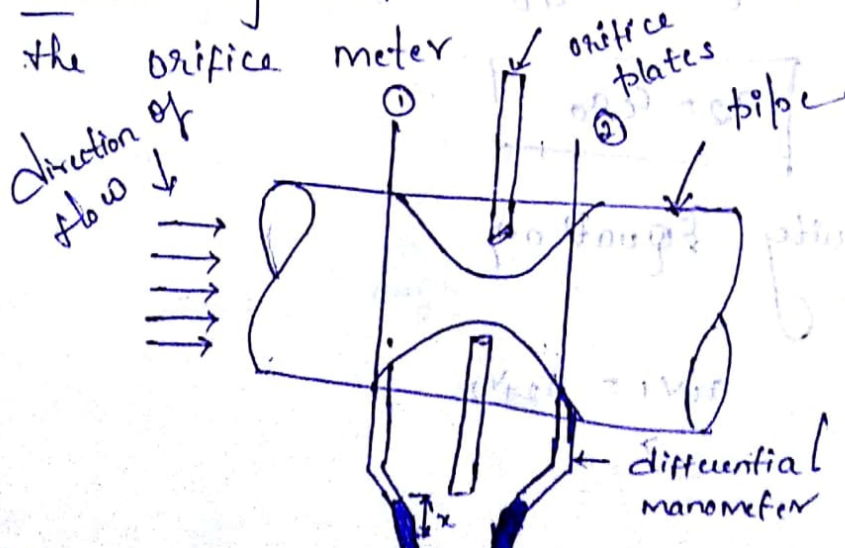 the orifice meter
orifice
plates
①
②
pipe
direction of
flow
differential
manometer
x